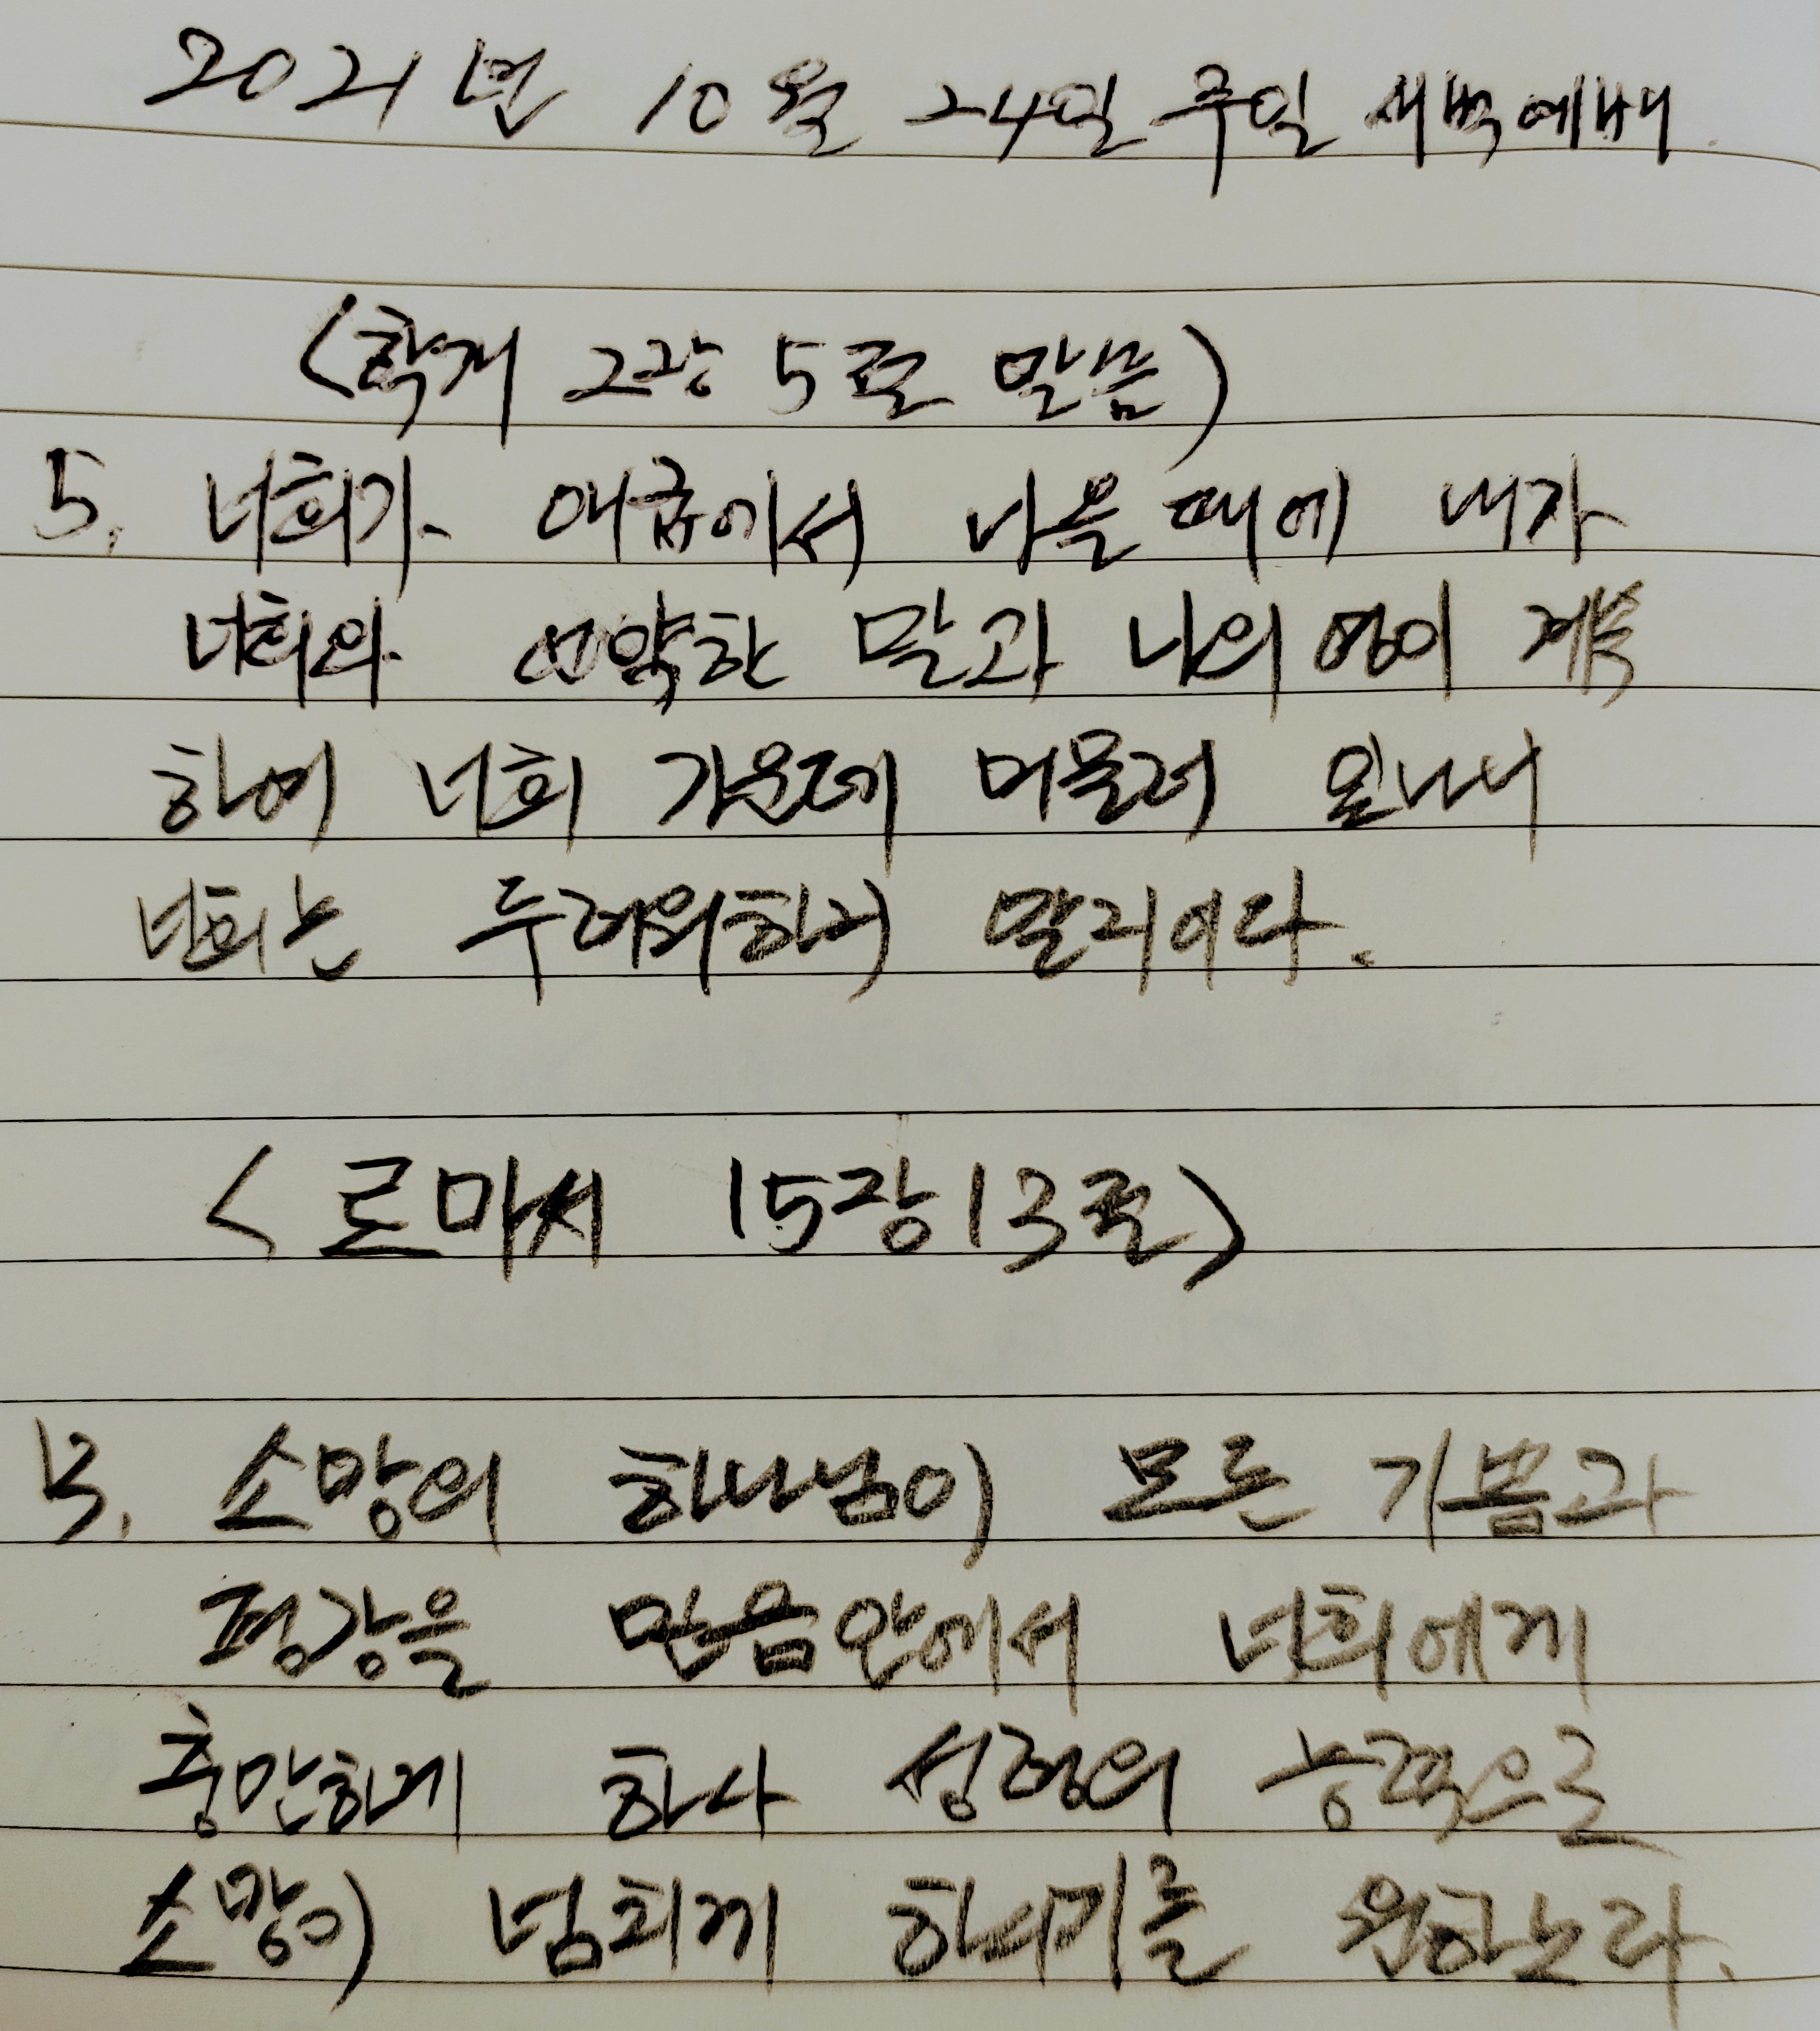 2021년 10월 24일 주일 새벽예배.
(학개 2장 5절 말씀)
5. 너희가 애굽에서 나올 때에 내가
너희와 언약한 말과 나의 영이 계속
하여 너희 가운데 머물러 있나니
너희는 두려워하지 말지어다.
<로마서 15장 13절>
13. 소망의 하나님이 모든 기쁨과
평강을 믿음안에서 너희에게
충만하게 하사 성령의 능력으로
소망이 넘치게 하시기를 원하노라.